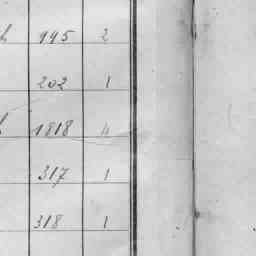 195 2
202 1
1818 4
317 1
318 1